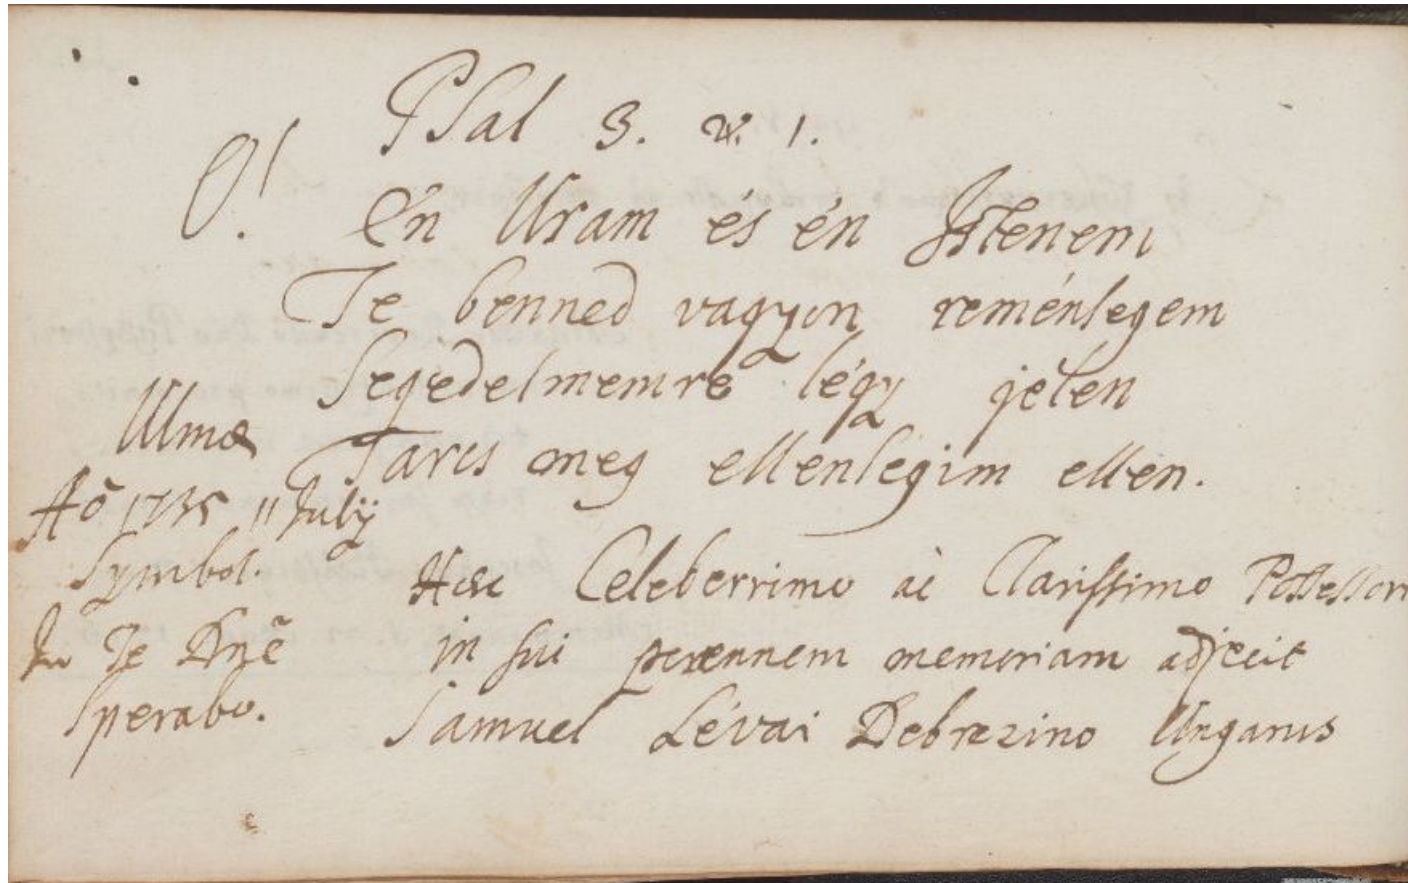 Psal 3. v. 1.
O! én Uram és én Istenem
Te benned vagyon reménségem
Segedelmemre légy jelen
Tarts meg ellenségim ellen.
Ulmæ
Aō 1735 11 Julij
Symbol.
In Te Dn̄e
Sperabo.
Hæc Celeberrimo ac Clarissimo Possessori
in sui perennem memoriam adjecit
Samuel Lévai Debrezino Ungarus